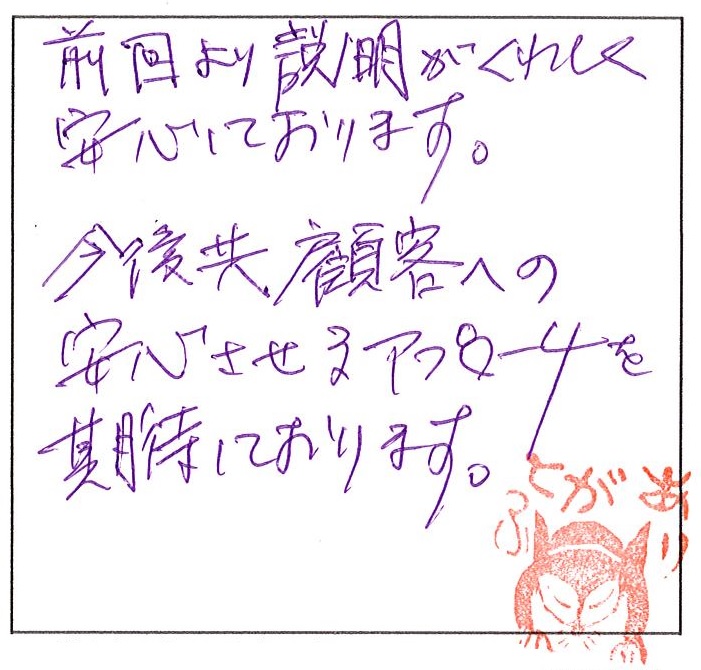 前回より説明がくわしく
安心しております。
今後共、顧客への
安心させるアプローチを
期待しております。
ありがとふ